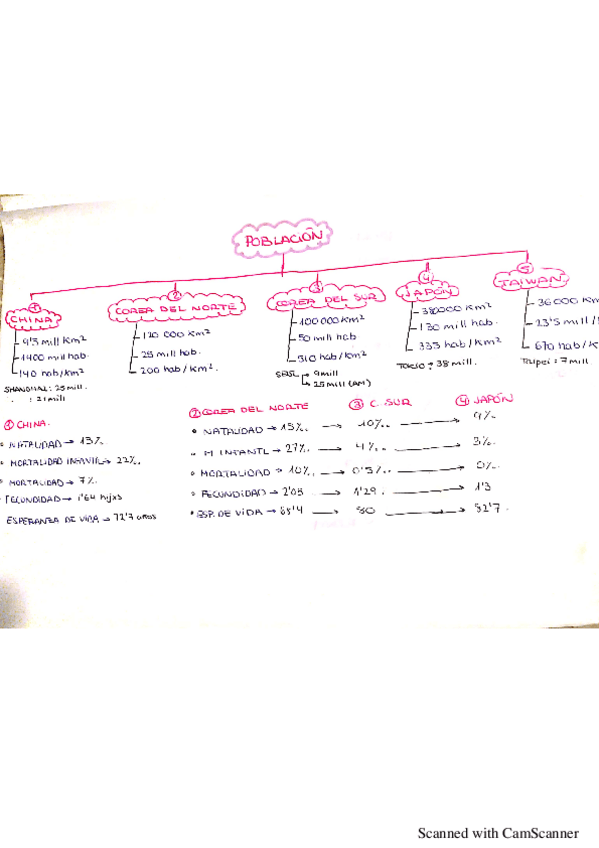 POBLACIÓN
① CHINA
9'5 mill Km²
1400 mill hab.
140 hab/km²
SHANGHAI: 25 mill.
: 21 mill
② COREA DEL NORTE
120 000 km²
25 mill hab.
200 hab/km².
③ COREA DEL SUR
100 000 Km²
50 mill hab
510 hab/km²
9 mill
25 mill (AM)
④ JAPÓN
380000 Km²
130 mill hab
335 hab/km²
TOKIO: 38 mill.
⑤ TAIWAN
36000 Km
23'5 mill
670 hab/k
Taipei: 7 mill
① CHINA.
NATALIDAD → 13‰
MORTALIDAD INFANTIL → 22‰.
MORTALIDAD → 7‰
FECUNDIDAD → 1'64 hijxs
ESPERANZA DE VIDA → 72'7 años
② COREA DEL NORTE ③ C. SUR ④ JAPÓN
NATALIDAD → 15‰ → 10‰ → 9‰
M INFANTIL → 27‰ → 4‰ → 3‰
MORTALIDAD → 10‰ → 0'5‰ → 0‰
FECUNDIDAD → 2'05 → 1'29 → 1'3
ESP. DE VIDA → → 80 → 82'7.
Scanned with CamScanner